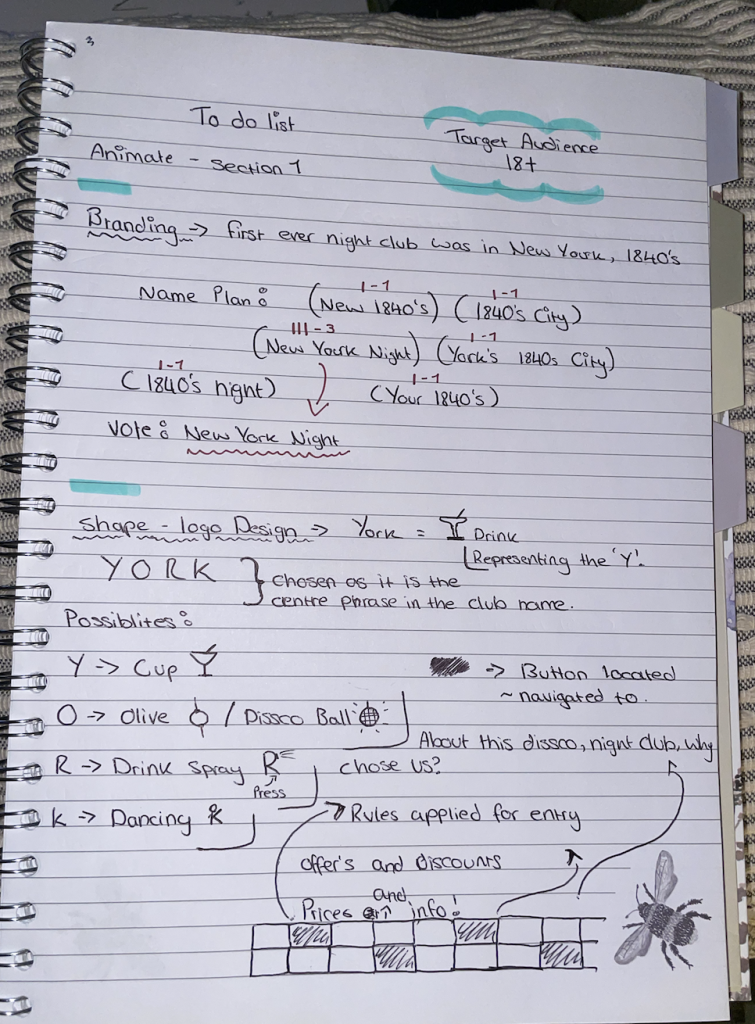 3
To do list
Target Audience
18+
Animate - section 1
Branding -> first ever night club was in New York, 1840's
Name Plan: (New 1840's) (1840's City)
I-1 I-1
(New York Night) (York's 1840s City)
III-3 I-1
(1840's night) (Your 1840's)
I-1 I-1
Vote: New York Night
Shape - logo Design -> York = Drink
Representing the 'Y'.
YORK } chosen as it is the
centre phrase in the club name.
Possiblites:
Y -> Cup
-> Button located
~ navigated to.
O -> Olive / Dissco Ball
About this dissco, night club, why
chose us?
R -> Drink Spray R
Press
K -> Dancing K
Rules applied for entry
offer's and discounts
and
Prices info!